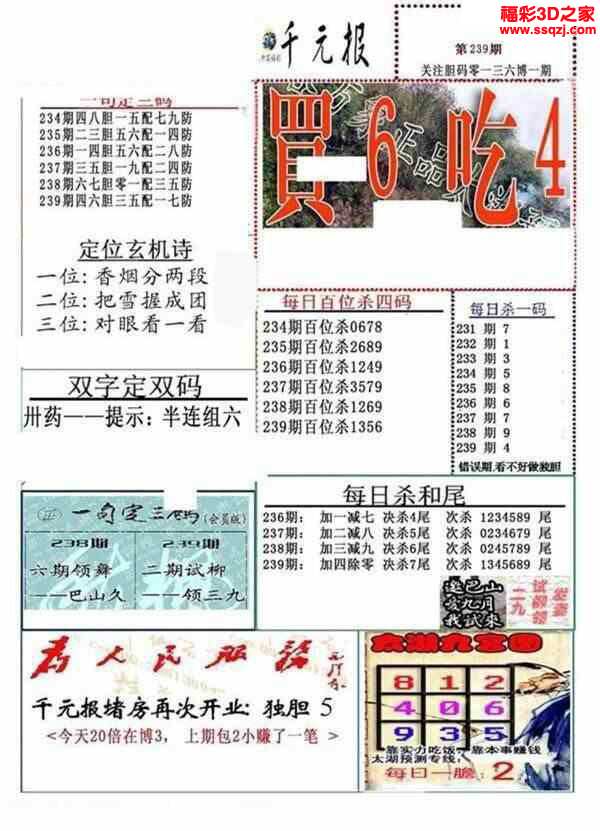 福彩3D之家
www.ssqzj.com
千元报
第239期
关注胆码零一三六博一期
一句定三码
234期四八胆一五配七九防
235期二三胆五六配一四防
236期一四胆五六配二八防
237期三五胆一九配二四防
238期六七胆零一配三五防
239期四六胆三五配一七防
買6吃4
定位玄机诗
一位:香烟分两段
二位:把雪握成团
三位:对眼看一看
每日百位杀四码
234期百位杀0678
235期百位杀2689
236期百位杀1249
237期百位杀3579
238期百位杀1269
239期百位杀1356
每日杀一码
231 期 7
232 期 1
233 期 3
234 期 5
235 期 8
236 期 6
237 期 7
238 期 9
239 期 4
错误期,看不好做独胆
双字定双码
卅药——提示: 半连组六
一句定三码(会员版)
238期
六期领舞
——巴山久
239期
二期试柳
——领三九
每日杀和尾
236期: 加一减七 决杀4尾 次杀 1234589 尾
237期: 加二减八 决杀5尾 次杀 0234679 尾
238期: 加三减九 决杀6尾 次杀 0245789 尾
239期: 加四除零 决杀7尾 次杀 1345689 尾
为人民服务
千元报堵房再次开业: 独胆 5
<今天20倍在博3, 上期包2小赚了一笔 >
太湖九宫图
8 1 2
4 0 6
9 3 5
靠实力吃饭, 靠本事赚钱
太湖预测专线:
每日一胆: 2